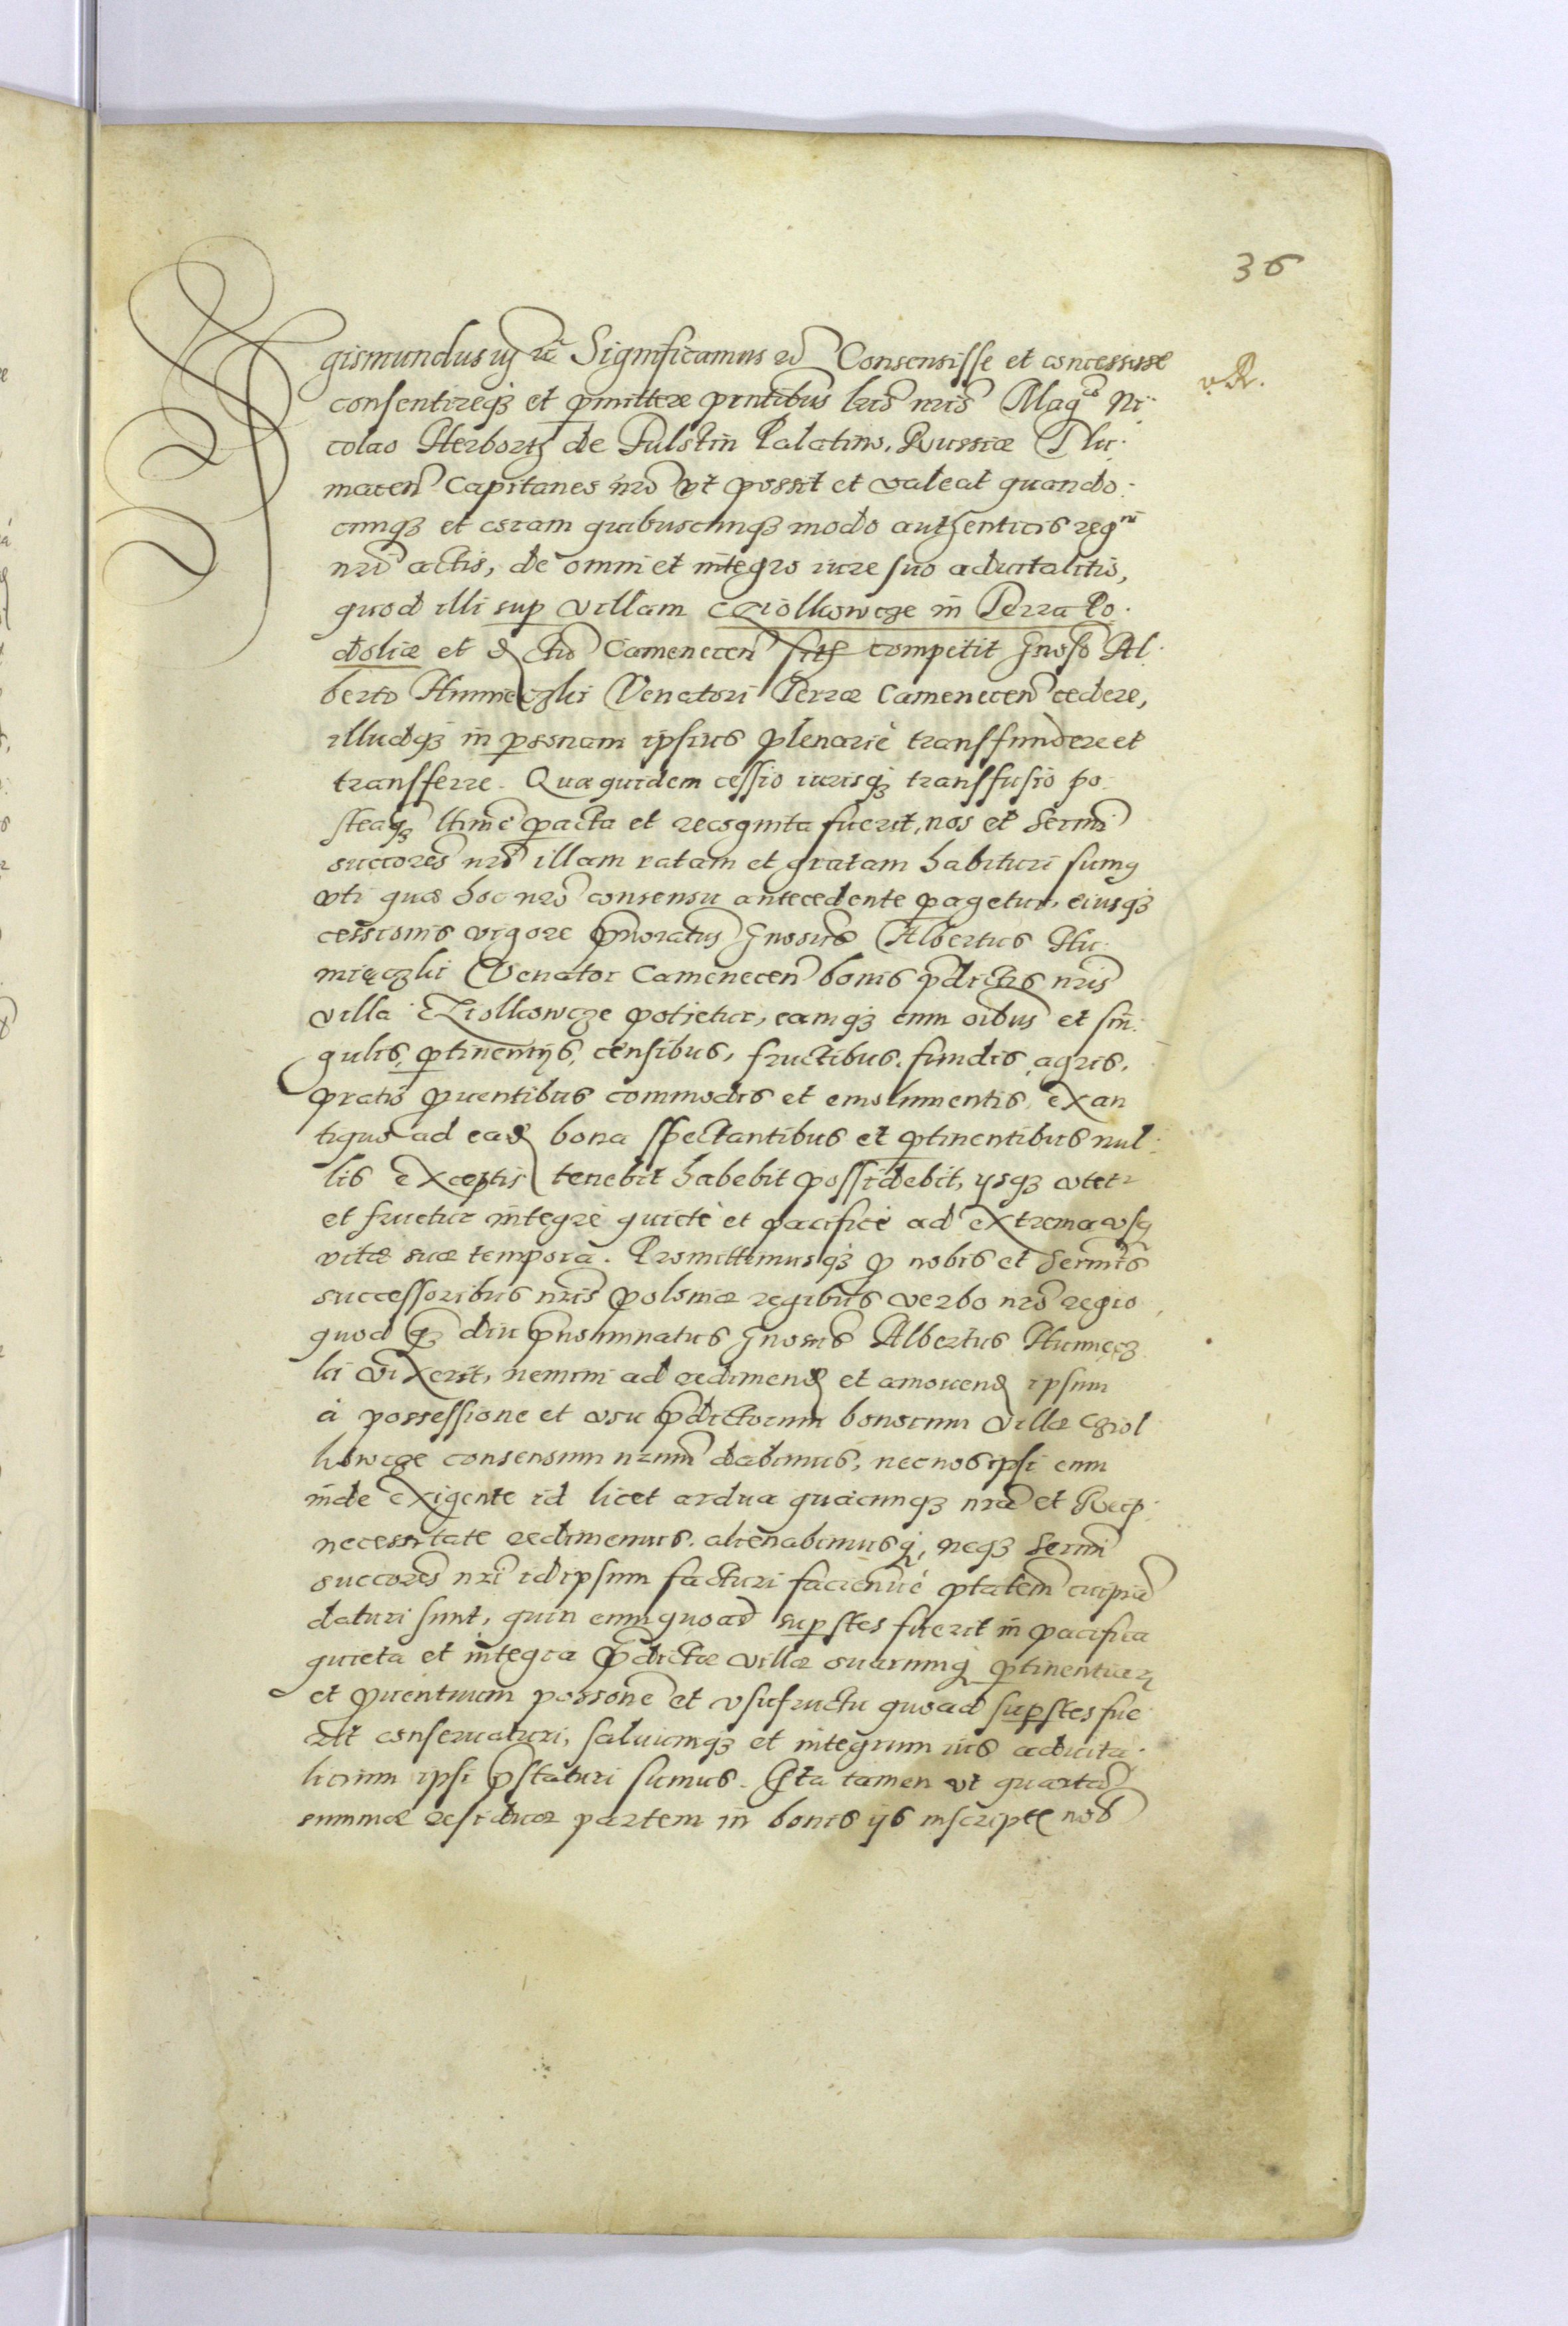 36
Sigismundus iij etc Significamus etc Consensisse et concessisse
v. R.
consentireq3 et pmittere pntibus lris nris Magco Ni-
colao Herborth de Fulstin Palatino Russiæ Thu-
macen Capitaneo nro vt possit et valeat quando-
cunq3 et coram quibuscunq3 modo authenticis regni
nri actis, de omni et integro iure suo aduitalitio,
quod illi sup villam Cziolkowcze in Terra Po-
doliæ et dctu Camenecen sith competit Gnoso Al-
berto Humieczki Venatori Terræ Camenecen cedere,
illudq3 in psonam ipsius plenarie transfundere et
transferre. Quæquidem cessio iurisq3 transfusio po-
steaq3 ltime pacta et recognita fuerit, nos et Sermi
succores nri illam ratam et gratam habituri sumq
vti quæ hoc nro consensu antecedente pagetur, eiusq3
cessionis vigore pnoratus Gnosus Albertus Hu-
mięczki Venator Camenecen bonis pdictis nris
villa Cziolkowcze potietur, eamq3 cum oibus et sin-
gulis, ptinentijs, censibus, fructibus, fundis, agris,
pratis puentibus commodis et emolumentis ex an
tiquo ad ead bona spectantibus et ptinentibus nul-
lis exceptis tenebit habebit possidebit, ysq3 vtetr
et fruetur integre quiete et pacifice ad extrema vsq
vitæ suæ tempora. Promittimusq3 p nobis et Sermis
successoribus nris Poloniæ regibus verbo nro regio
quod q3 diu pnominatus Gnosus Albertus Humięcz
ki vixerit, nemini ad redimend et amouend ipsum
à possessione et vsu pdictorum bonorum villæ Cziol
kowcze consensum nrum dabimus, nec nos ipsi eum
inde exigente id licet ardua quacunq3 nra et Reip
necessitate redimemus, alienabimusq, neq3 Sermi
succores nri idipsum facturi faciendiue ptatem cuipia
daturi sunt, quin eum quoad supstes fuerit in pacifica
quieta et integra pdictæ villæ suarumq ptinentiar
et puentuum possone et vsufructu quoad supstes fue
rit conseruaturi, saluumq3 et integrum ius aduita-
licium ipsi pstaturi sumus. Ita tamen vt quarta
summæ residuæ partem in bonis ijs inscriptæ nob